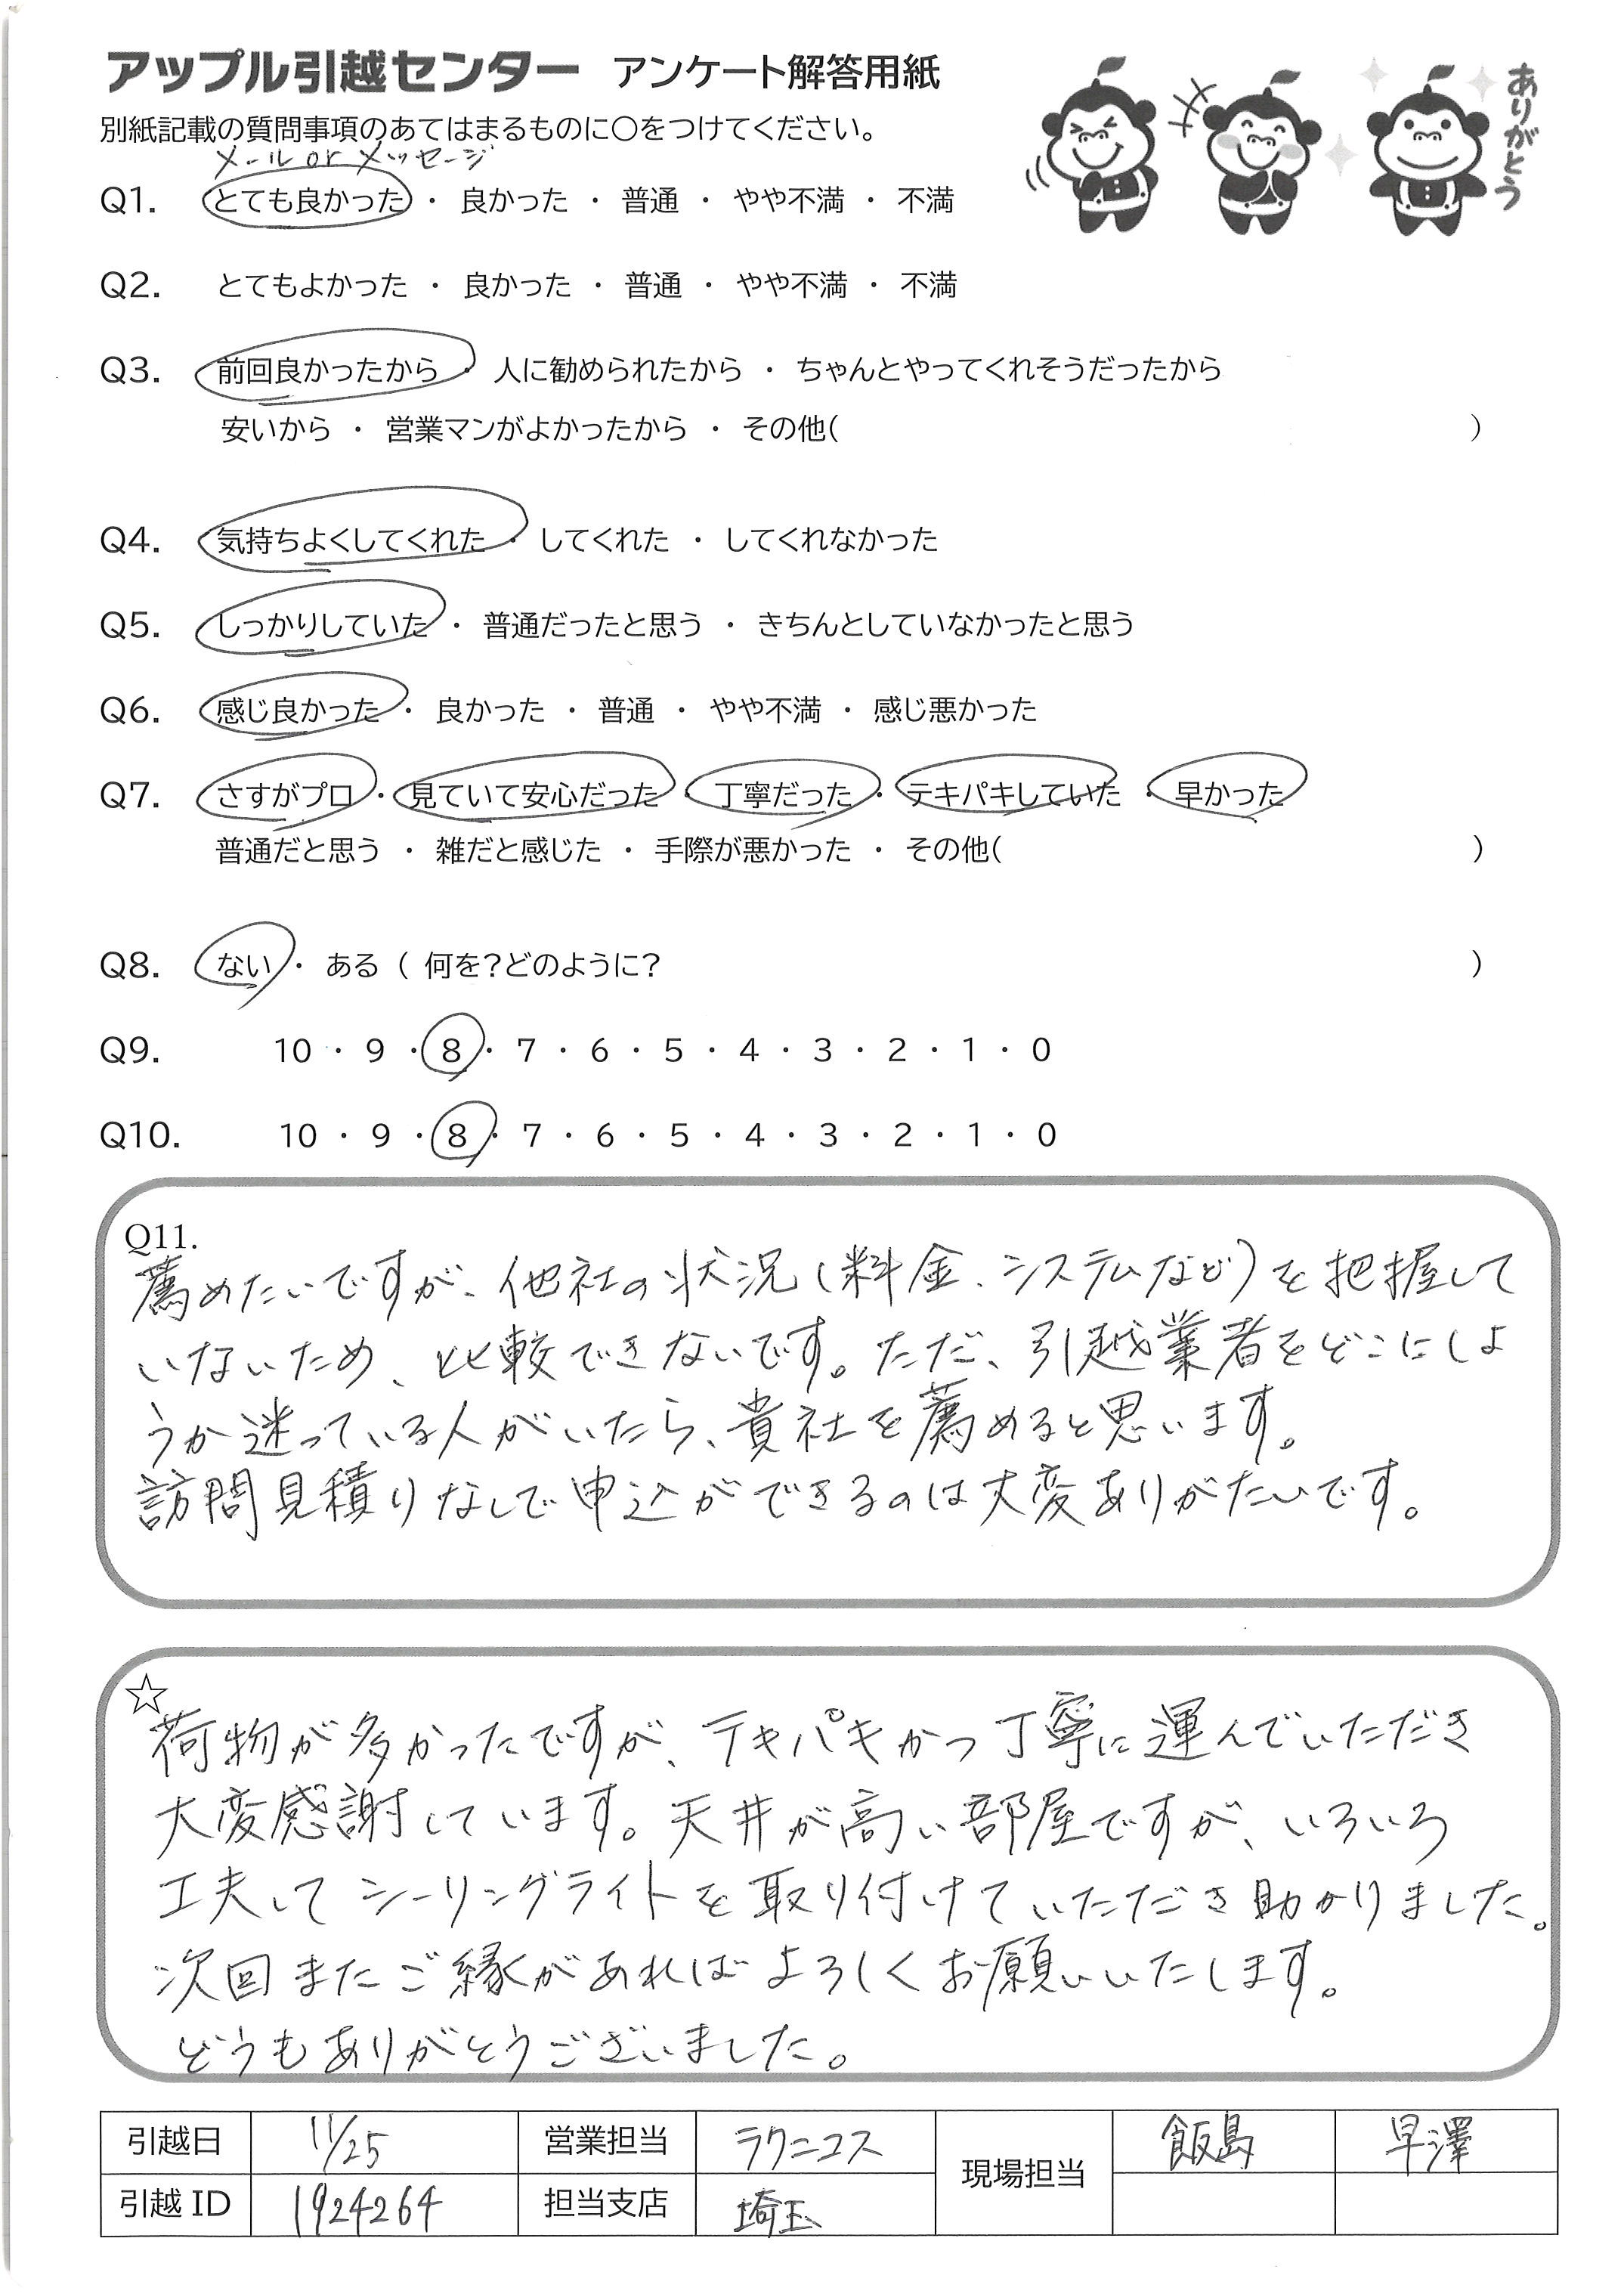 アップル引越センター アンケート解答用紙
ありがとう
別紙記載の質問事項のあてはまるものに○をつけてください。
メール or メッセージ
Q1. とても良かった ・ 良かった ・ 普通 ・ やや不満 ・ 不満
Q2. とてもよかった ・ 良かった ・ 普通 ・ やや不満 ・ 不満
Q3. 前回良かったから ・ 人に勧められたから ・ ちゃんとやってくれそうだったから
安いから ・ 営業マンがよかったから ・ その他( )
Q4. 気持ちよくしてくれた ・ してくれた ・ してくれなかった
Q5. しっかりしていた ・ 普通だったと思う ・ きちんとしていなかったと思う
Q6. 感じ良かった ・ 良かった ・ 普通 ・ やや不満 ・ 感じ悪かった
Q7. さすがプロ ・ 見ていて安心だった ・ 丁寧だった ・ テキパキしていた ・ 早かった
普通だと思う ・ 雑だと感じた ・ 手際が悪かった ・ その他( )
Q8. ない ・ ある ( 何を?どのように? )
Q9. 10 ・ 9 ・ 8 ・ 7 ・ 6 ・ 5 ・ 4 ・ 3 ・ 2 ・ 1 ・ 0
Q10. 10 ・ 9 ・ 8 ・ 7 ・ 6 ・ 5 ・ 4 ・ 3 ・ 2 ・ 1 ・ 0
Q11.
薦めたいですが、他社の状況(料金、システムなど)を把握して
いないため、比較できないです。ただ、引越業者をどこにしよ
うか迷っている人がいたら、貴社を薦めると思います。
訪問見積りなしで申込ができるのは大変ありがたいです。
☆
荷物が多かったですが、テキパキかつ丁寧に運んでいただき
大変感謝しています。天井が高い部屋ですが、いろいろ
工夫してシーリングライトを取り付けていただき助かりました。
次回またご縁があればよろしくお願いいたします。
どうもありがとうございました。
引越日 11/25 営業担当 ラクニコス 現場担当 飯島 早澤
引越ID 1924264 担当支店 埼玉